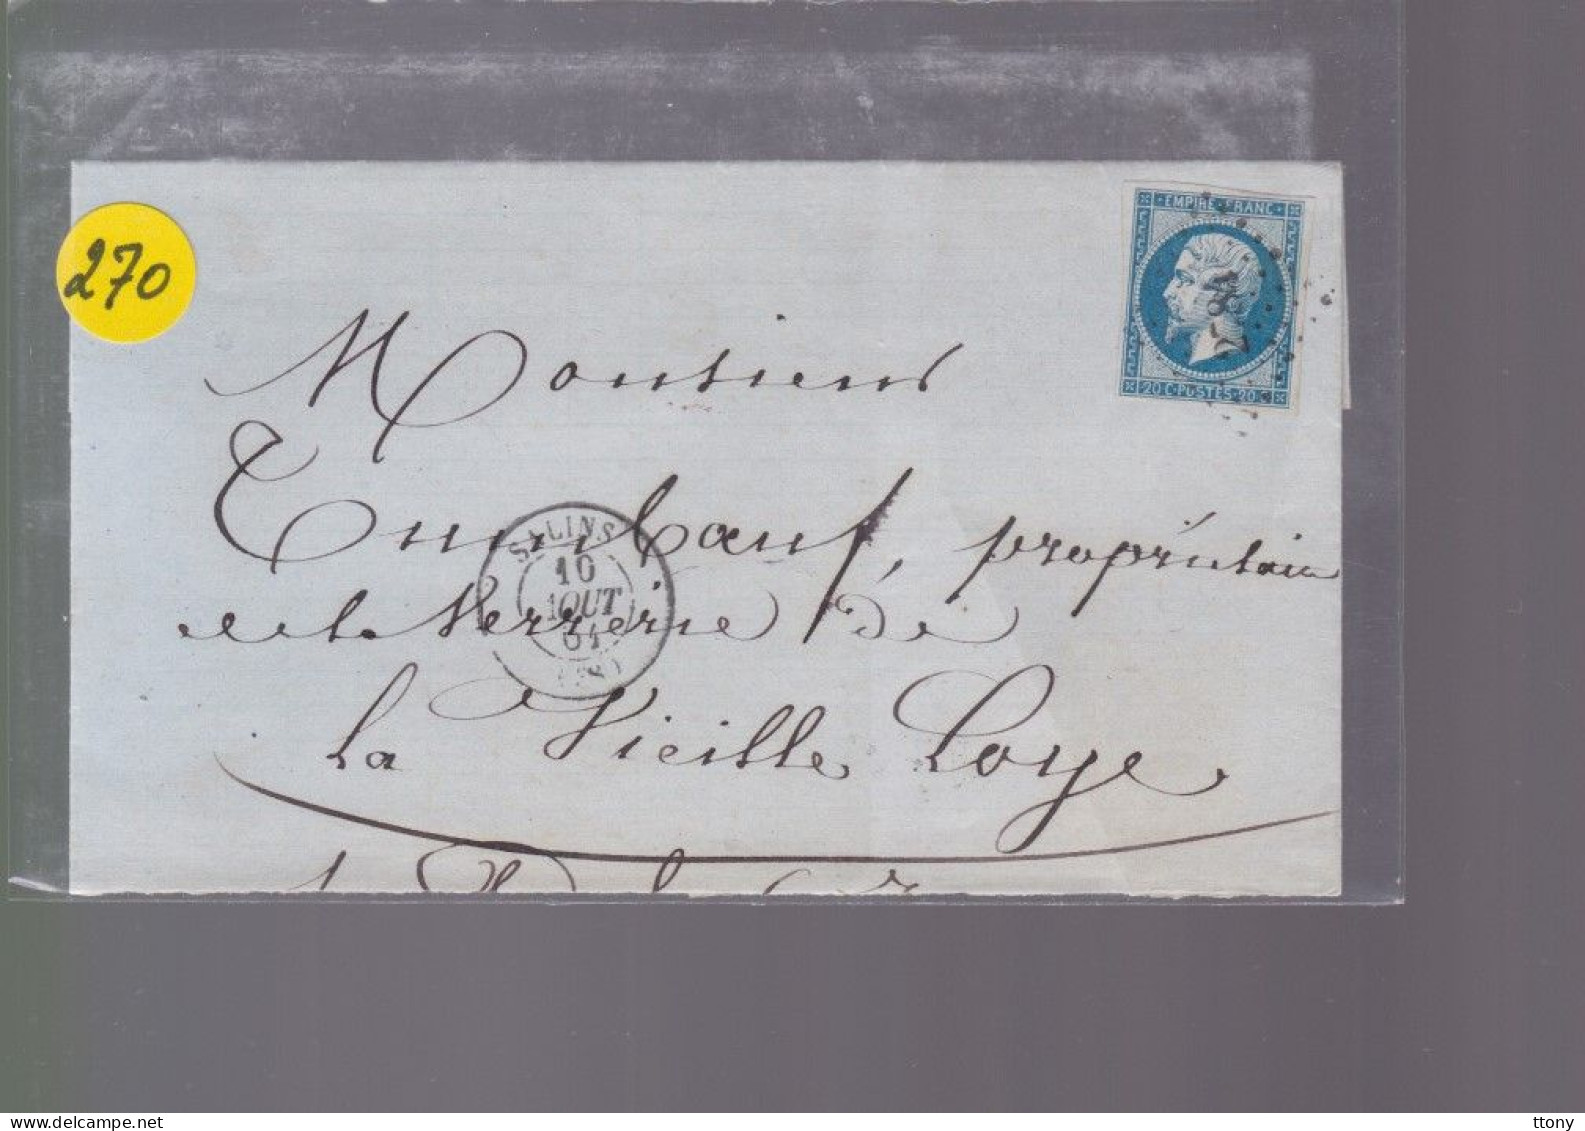 270
EMPIRE FRANC
20 C. POSTES 20 C
Monsieur
propriétaire
de la Verrerie de
la Vieille Loye
SALINS
10
AOUT
61
www.delcampe.net
ttony